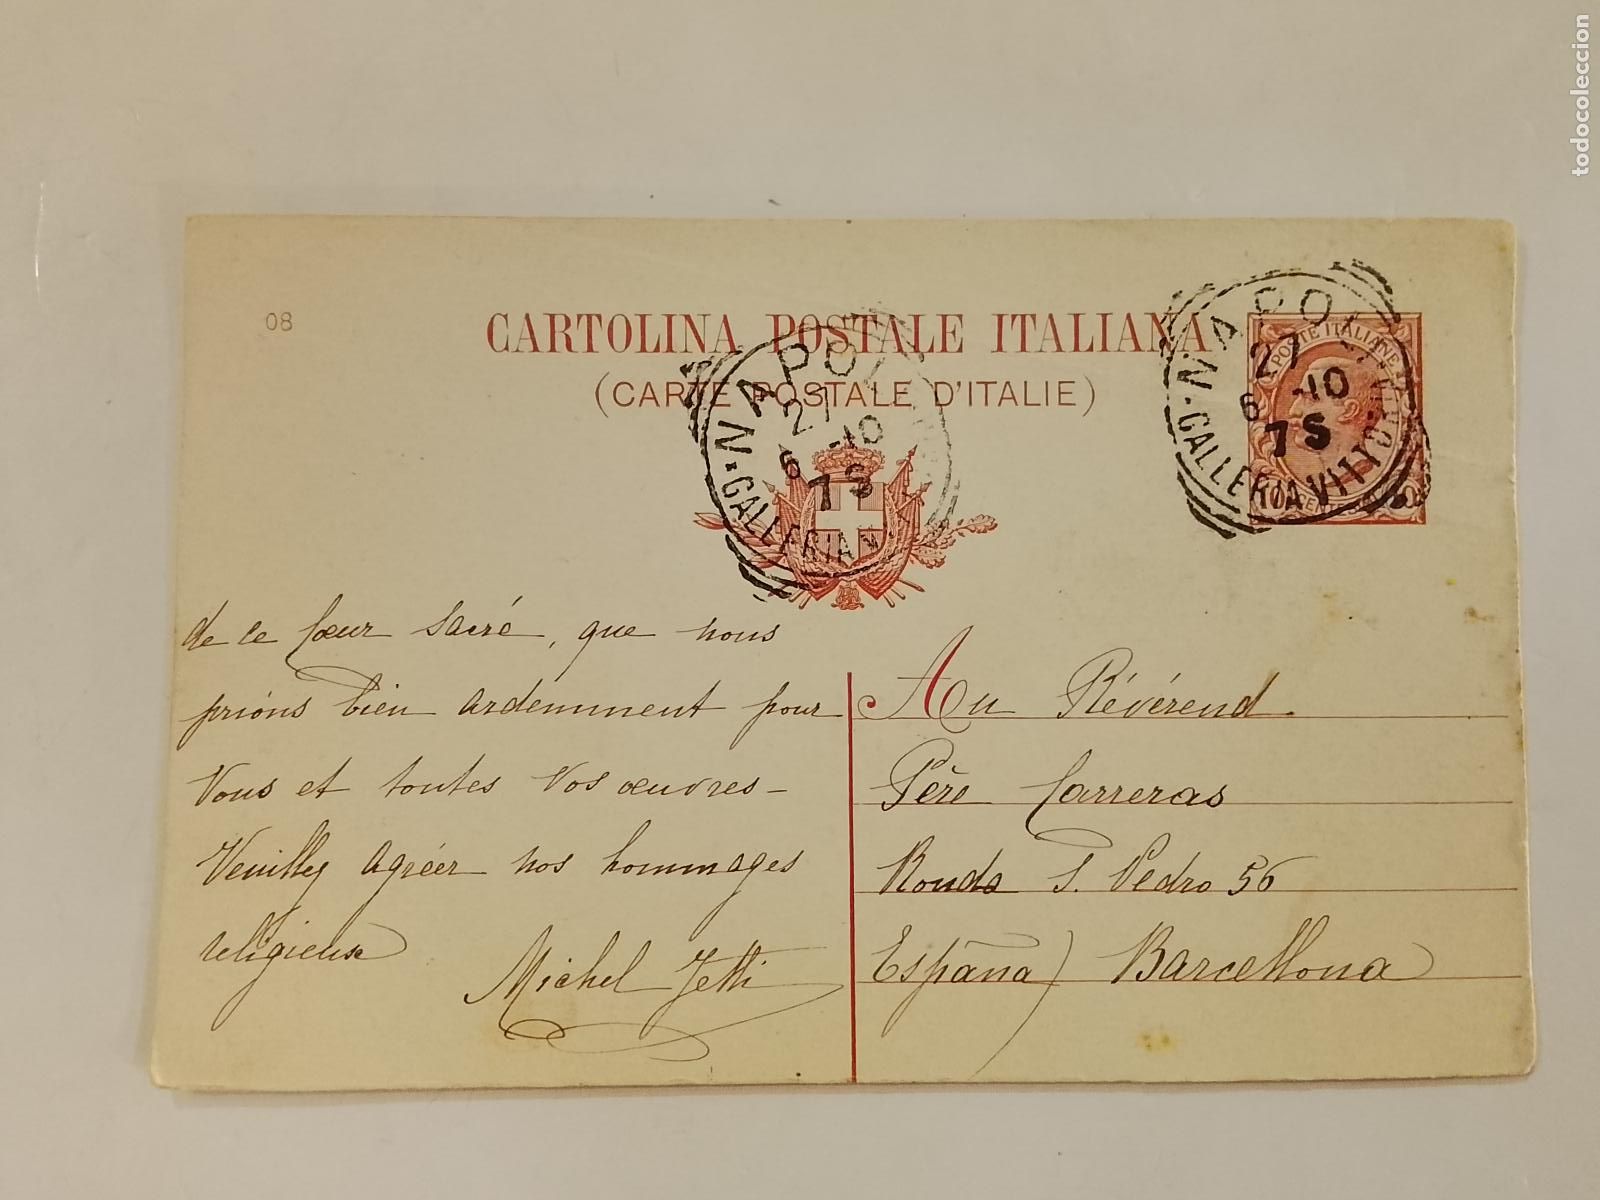 08
CARTOLINA POSTALE ITALIANA
(CARTE POSTALE D'ITALIE)
POSTE ITALIANE
NAPOLI
27
6 -10
7 S
GALLERIA VITTORIO
NAPOLI
27
6 -10
7 S
GALLERIA
de ce Cœur Sacré, que nous
prions bien ardemment pour
Vous et toutes Vos œuvres-
Veuillez agréer nos hommages
religieuse
Michel
Au Révérend
Père Carreras
Ronda S. Pedro 56
España) Barcellona
todocoleccion